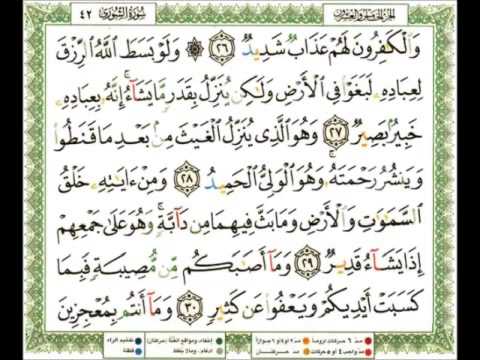 الجزء الخامس والعشرون سورة الشورى ٤٢
وَالْكَٰفِرُونَ لَهُمْ عَذَابٌ شَدِيدٌ ٢٦ ۞ وَلَوْ بَسَطَ اللَّهُ الرِّزْقَ
لِعِبَادِهِۦ لَبَغَوْا۟ فِى الْأَرْضِ وَلَٰكِن يُنَزِّلُ بِقَدَرٍ مَّا يَشَآءُ ۚ إِنَّهُۥ بِعِبَادِهِۦ
خَبِيرٌۢ بَصِيرٌ ٢٧ وَهُوَ الَّذِى يُنَزِّلُ الْغَيْثَ مِنۢ بَعْدِ مَا قَنَطُوا۟
وَيَنشُرُ رَحْمَتَهُۥ ۚ وَهُوَ الْوَلِىُّ الْحَمِيدُ ٢٨ وَمِنْ ءَايَٰتِهِۦ خَلْقُ
السَّمَٰوَٰتِ وَالْأَرْضِ وَمَا بَثَّ فِيهِمَا مِن دَآبَّةٍ ۚ وَهُوَ عَلَىٰ جَمْعِهِمْ
إِذَا يَشَآءُ قَدِيرٌ ٢٩ وَمَآ أَصَٰبَكُم مِّن مُّصِيبَةٍ فَبِمَا
كَسَبَتْ أَيْدِيكُمْ وَيَعْفُوا۟ عَن كَثِيرٍ ٣٠ وَمَآ أَنتُم بِمُعْجِزِينَ